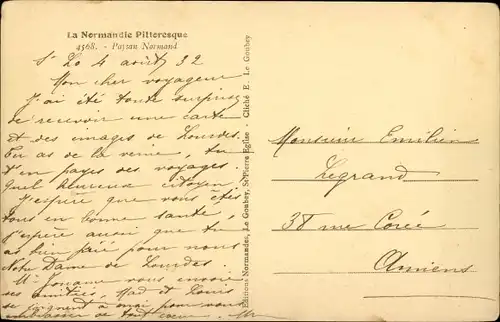 La Normandie Pittoresque
4568. - Paysan Normand
St Lo 4 août 32
Mon cher voyageur
J'ai été toute surprise
de recevoir une carte
et des images de Lourdes.
Tu as de la veine, tu
t'en payes des voyages.
Quel heureux citoyen
J'espère que vous êtes
tous en bonne santé,
J'espère aussi que tu
as bien prié pour nous
Notre Dame de Lourdes.
vous envoie
ses amitiés, Mad et Louis
se joignent à moi pour vous
embrasser de tout coeur.
Editions Normandes, Le Goubey, St-Pierre Eglise - Cliché E. Le Goubey
Monsieur Emilien
Legrand
38 rue
Amiens